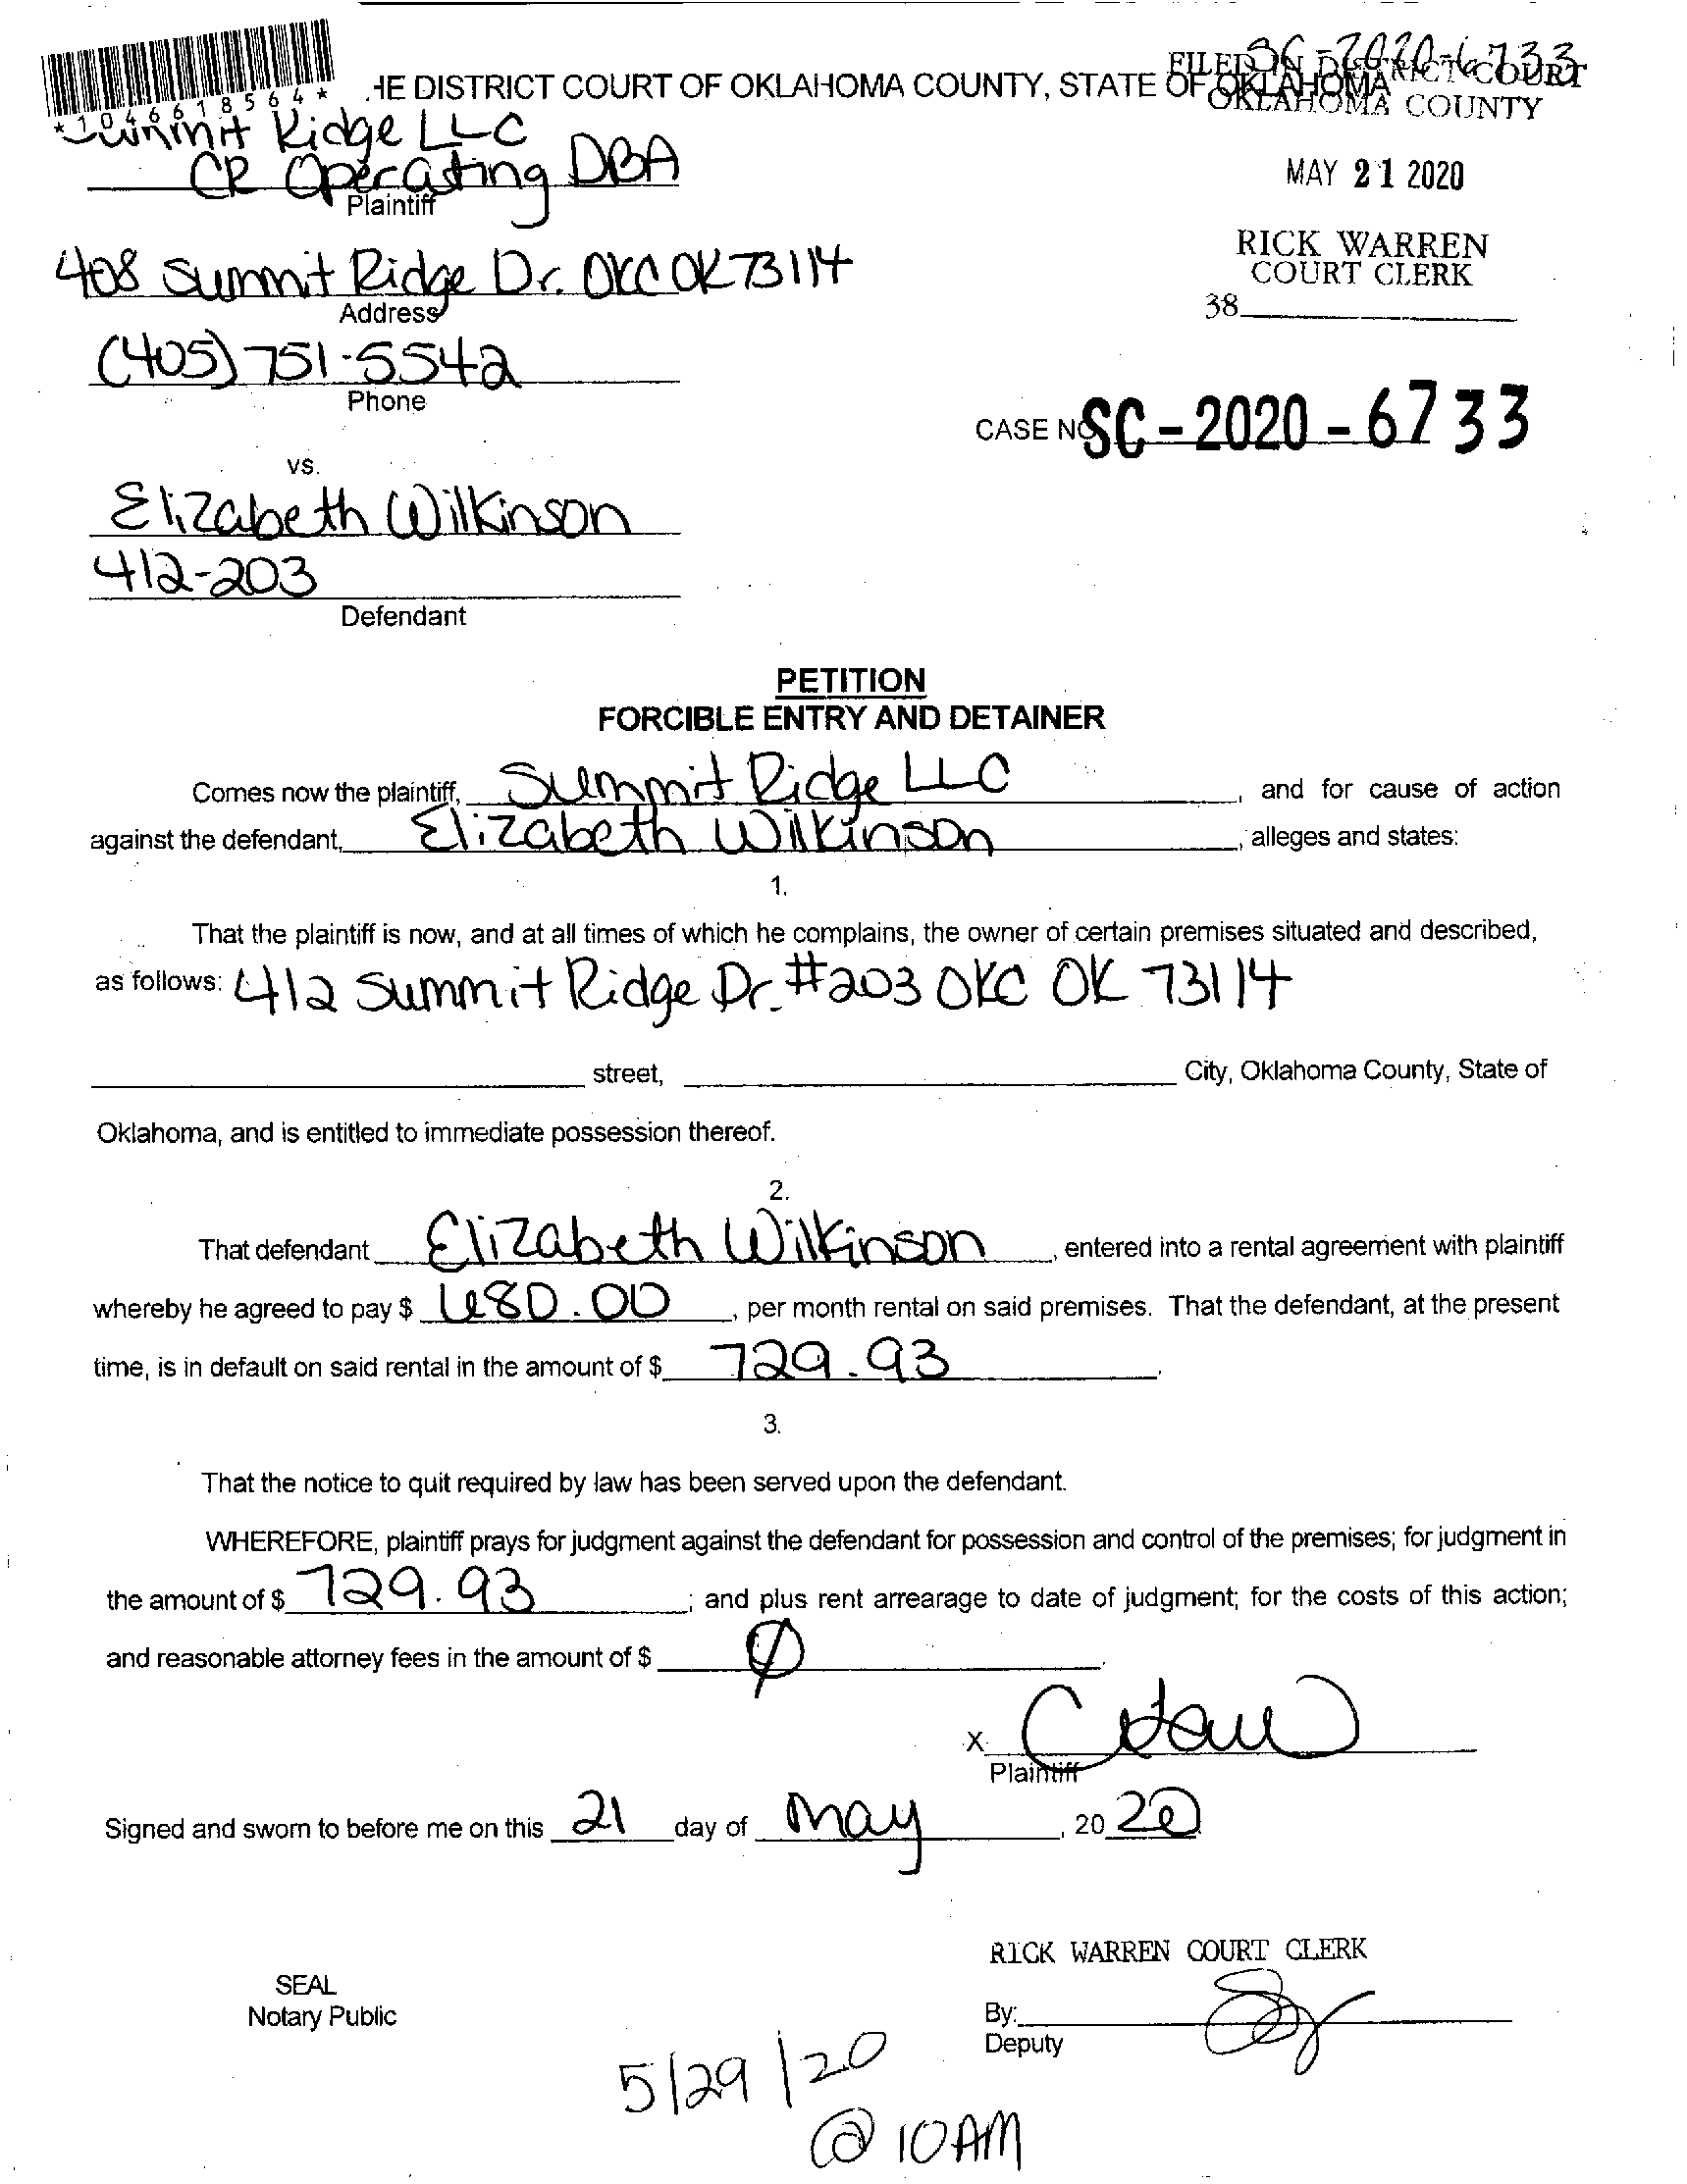 SC-2020-6733
HE DISTRICT COURT OF OKLAHOMA COUNTY, STATE OF OKLAHOMA
FILED IN DISTRICT COURT
OKLAHOMA COUNTY
*1046618564*
Summit Ridge LLC
CR Operating DBA
Plaintiff
MAY 21 2020
RICK WARREN
COURT CLERK
38
408 Summit Ridge Dr. OKC OK 73114
Address
(405) 751-5542
Phone
CASE NO SC-2020-6733
vs.
Elizabeth Wilkinson
412-203
Defendant
PETITION
FORCIBLE ENTRY AND DETAINER
Comes now the plaintiff, Summit Ridge LLC, and for cause of action
against the defendant, Elizabeth Wilkinson, alleges and states:
1.
That the plaintiff is now, and at all times of which he complains, the owner of certain premises situated and described,
as follows: 412 Summit Ridge Dr. #203 OKC OK 73114
street, City, Oklahoma County, State of
Oklahoma, and is entitled to immediate possession thereof.
2.
That defendant Elizabeth Wilkinson, entered into a rental agreement with plaintiff
whereby he agreed to pay $ 680.00, per month rental on said premises. That the defendant, at the present
time, is in default on said rental in the amount of $ 729.93.
3.
That the notice to quit required by law has been served upon the defendant.
WHEREFORE, plaintiff prays for judgment against the defendant for possession and control of the premises; for judgment in
the amount of $ 729.93; and plus rent arrearage to date of judgment; for the costs of this action;
and reasonable attorney fees in the amount of $ Ø.
X
Plaintiff
Signed and sworn to before me on this 21 day of May, 2020
RICK WARREN COURT CLERK
SEAL
Notary Public
By:
Deputy
5/29/20
@ 10AM